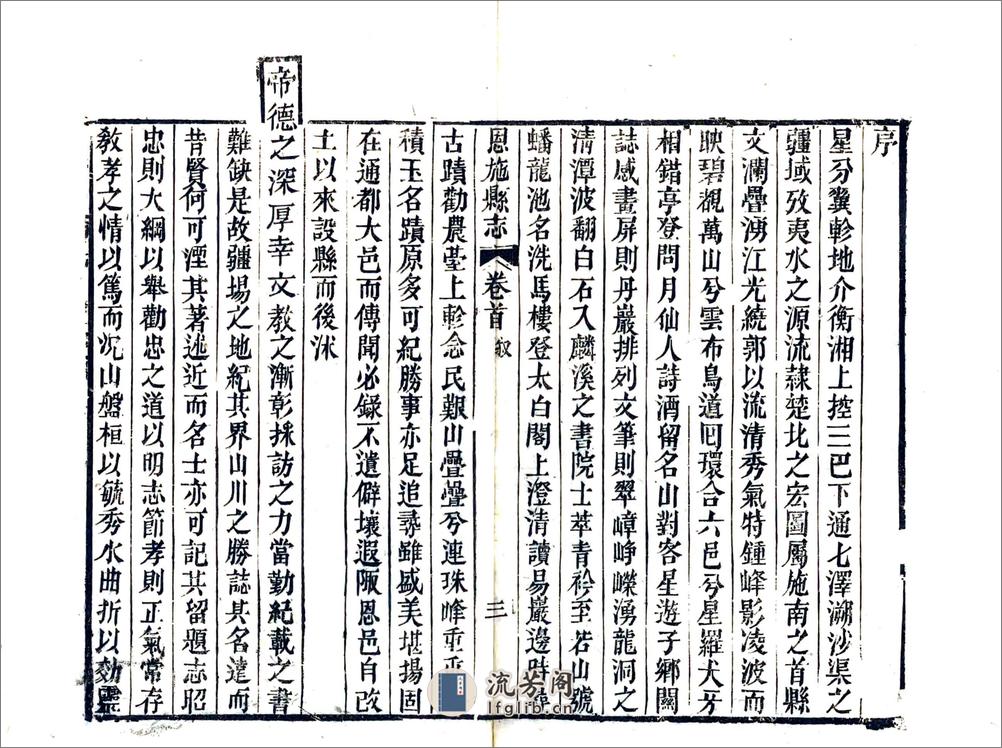 序
星分翼軫地介衡湘上控三巴下通七澤溯沙渠之
疆域攷夷水之源流隷楚北之宏圖屬施南之首縣
文瀾疊湧江光繞郭以流清秀氣特鍾峰影凌波而
映碧覩萬山兮雲布鳥道囘環合六邑兮星羅犬牙
相錯亭登問月仙人詩酒留名山對客星遊子鄉關
誌感畫屏則丹巖排列文筆則翠嶂崢嶸湧龍洞之
清潭波翻白石入麟溪之書院士萃青衿至若山號
蟠龍池名洗馬樓登太白閣上澄清讀易巖邊時
恩施縣志 卷首 叙 三
古蹟勸農臺上軫念民艱山疊疊兮連珠峰重重
積玉名蹟原多可紀勝事亦足追尋雖盛美堪揚固
在通都大邑而傳聞必録不遺僻壤遐陬恩邑自改
土以來設縣而後沐
帝德之深厚幸文教之漸彰採訪之力當勤紀載之書
難缺是故疆場之地紀其界山川之勝誌其名達而
昔賢何可湮其著述近而名士亦可記其留題志昭
忠則大綱以舉勸忠之道以明志節孝則正氣常存
敎孝之情以篤而況山盤桓以毓秀水曲折以効靈
流芳阁
lfglib.cn